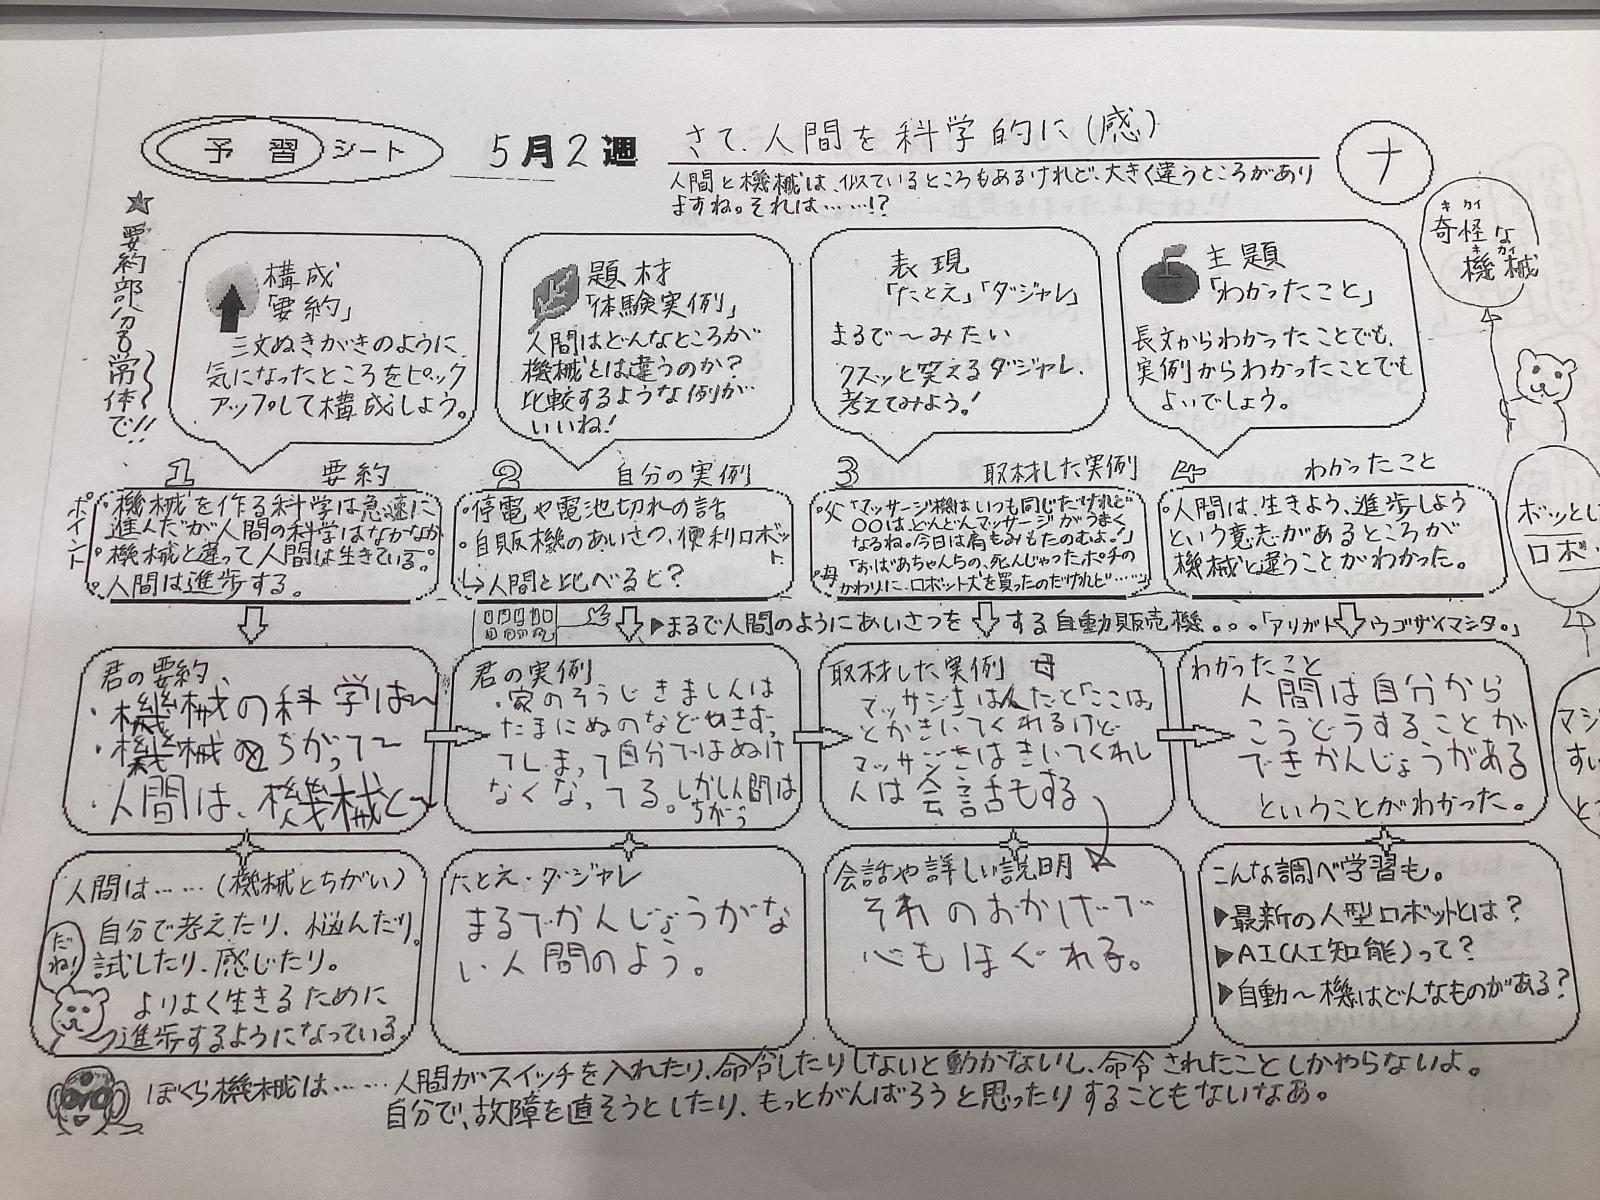 予習シート 5月2週 さて、人間を科学的に(感) ナ
人間と機械は、似ているところもあるけれど、大きく違うところがあり
ますね。それは……!?
☆要約部分も常体で!!
構成
「要約」
三文ぬきがきのように
気になったところをピック
アップして構成しよう。
題材
「体験実例」
人間はどんなところが
機械とは違うのか?
比較するような例が
いいね!
表現
「たとえ」「ダジャレ」
まるで〜みたい
クスッと笑えるダジャレ、
考えてみよう!
主題
「わかったこと」
長文からわかったことでも、
実例からわかったことでも
よいでしょう。
キカイ
奇怪な
キカイ
機械
1 要約
ポイント
・機械を作る科学は急速に
進んだが人間の科学はなかなか
・機械と違って人間は生きている。
・人間は進歩する。
2 自分の実例
・停電や電池切れの話
・自販機のあいさつ、便利ロボット
↳人間と比べると?
3 取材した実例
・父「マッサージ機はいつも同じだけれど
〇〇はどんどんマッサージがうまく
なるね。今日は肩ももみもたのむよ。」
・母「おばあちゃんちの、死んじゃったポチの
かわりに、ロボット犬を買ったのだけれど……」
4 わかったこと
・人間は、生きよう、進歩しよう
という意志があるところが
機械と違うことがわかった。
ボッとし
ロボ・
▶まるで人間のようにあいさつをする自動販売機。。。「アリガトウゴザイマシタ。」
君の要約
・機械の科学は〜
・機械とちがって〜
・人間は、機械と〜
君の実例
・家のそうじきましんは
たまにぬのなど
てしまって自分ではぬけ
なくなってる。しかし人間は
ちがう
取材した実例 母
マッサジきは人だと「ここは」
とかきいてくれるけど
マッサジきはきいてくれし
人は会話もする
わかったこと
人間は自分から
こうどうすることが
できかんじょうがある
ということがわかった。
マジ
すい
と
人間は……(機械とちがい)
自分で考えたり、悩んだり、
試したり、感じたり。
よりよく生きるために
進歩するようになっている。
だね!
たとえ・ダジャレ
まるでかんじょうがな
い人間のよう。
会話や詳しい説明
それのおかげで
心もほぐれる。
こんな調べ学習も。
▶最新の人型ロボットとは?
▶AI(人工知能)って?
▶自動〜機はどんなものがある?
ぼくら機械は……人間がスイッチを入れたり、命令したりしないと動かないし、命令されたことしかやらないよ。
自分で、故障を直そうとしたり、もっとがんばろうと思ったりすることもないなあ。